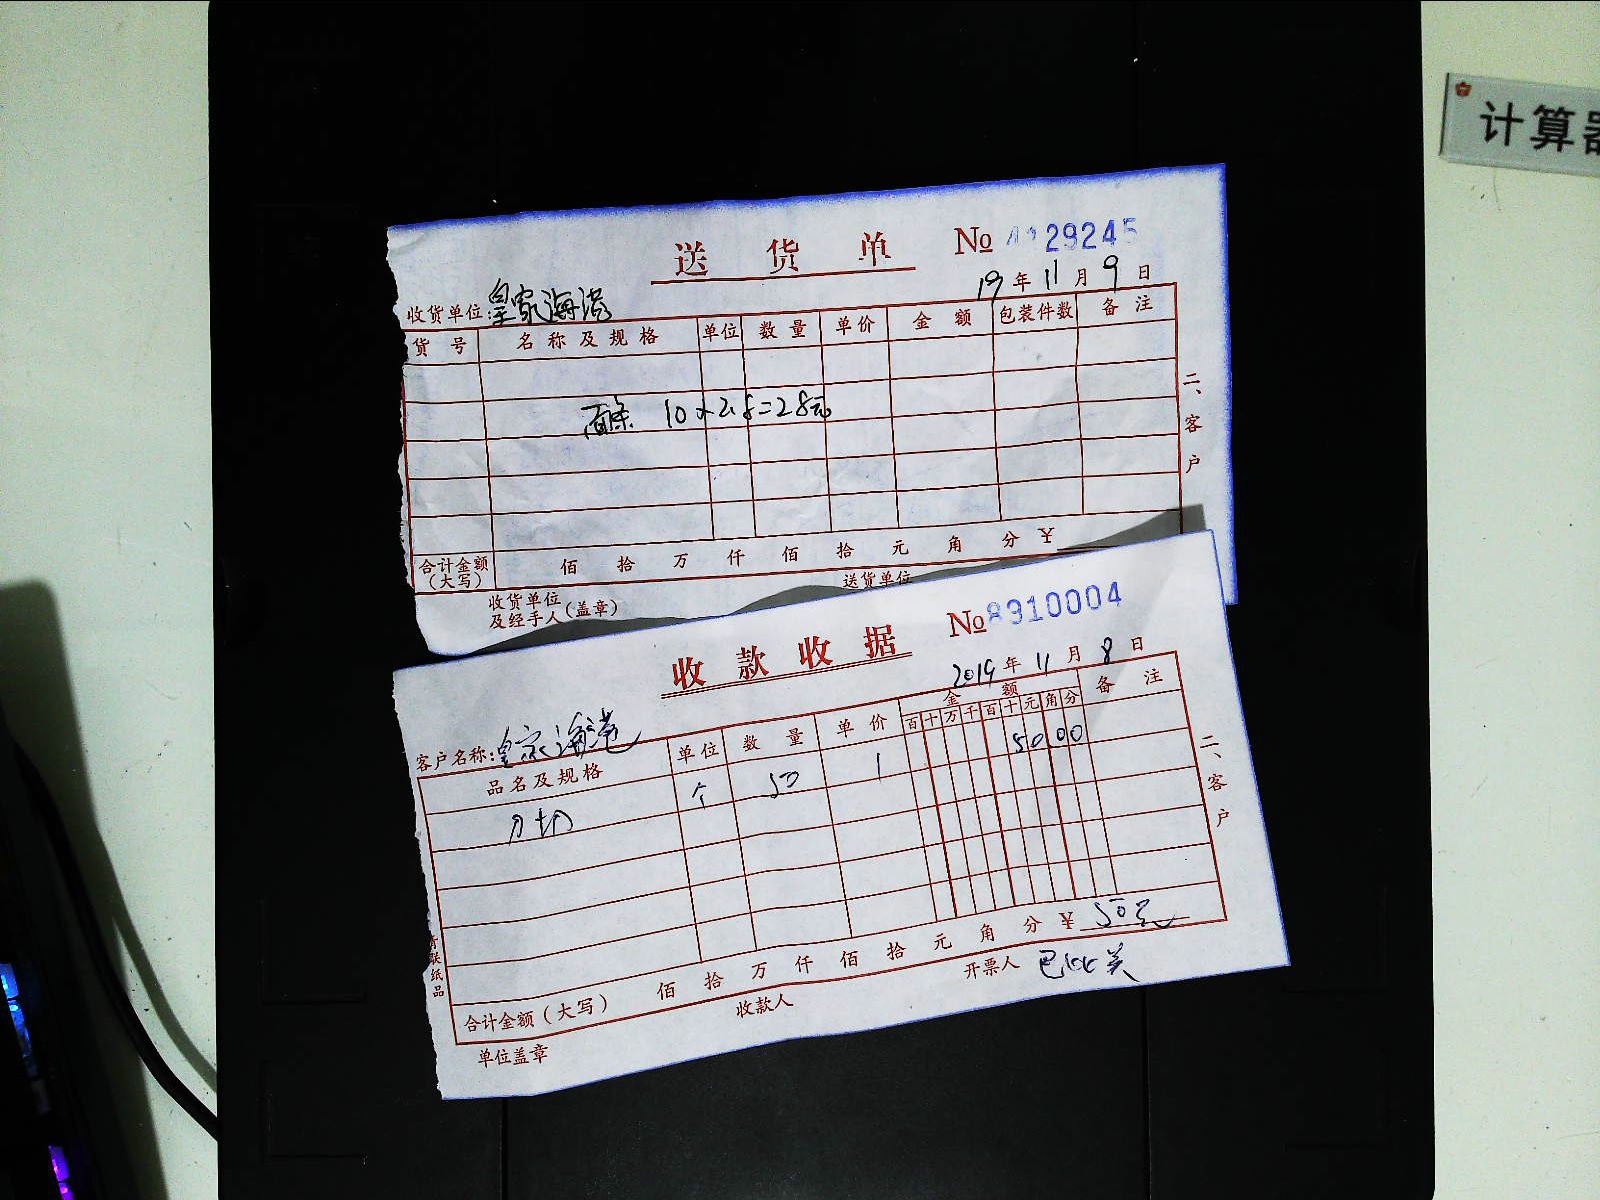 计算器
送货单 No 4229245
19年11月9日
收货单位:皇家海港
货号 名称及规格 单位 数量 单价 金额 包装件数 备注
面条 10×2.8=28元
二、客户
合计金额(大写) 佰 拾 万 仟 佰 拾 元 角 分 ¥
收货单位及经手人(盖章) 送货单位
收款收据 No 8910004
2019年11月8日
客户名称:皇家海港
品名及规格 单位 数量 单价 金额 备注
百 十 万 千 百 十 元 角 分
刀切 个 50 1 50 00
二、客户
合计金额(大写) 佰 拾 万 仟 佰 拾 元 角 分 ¥ 50元
收款人 开票人
单位盖章
联纸品